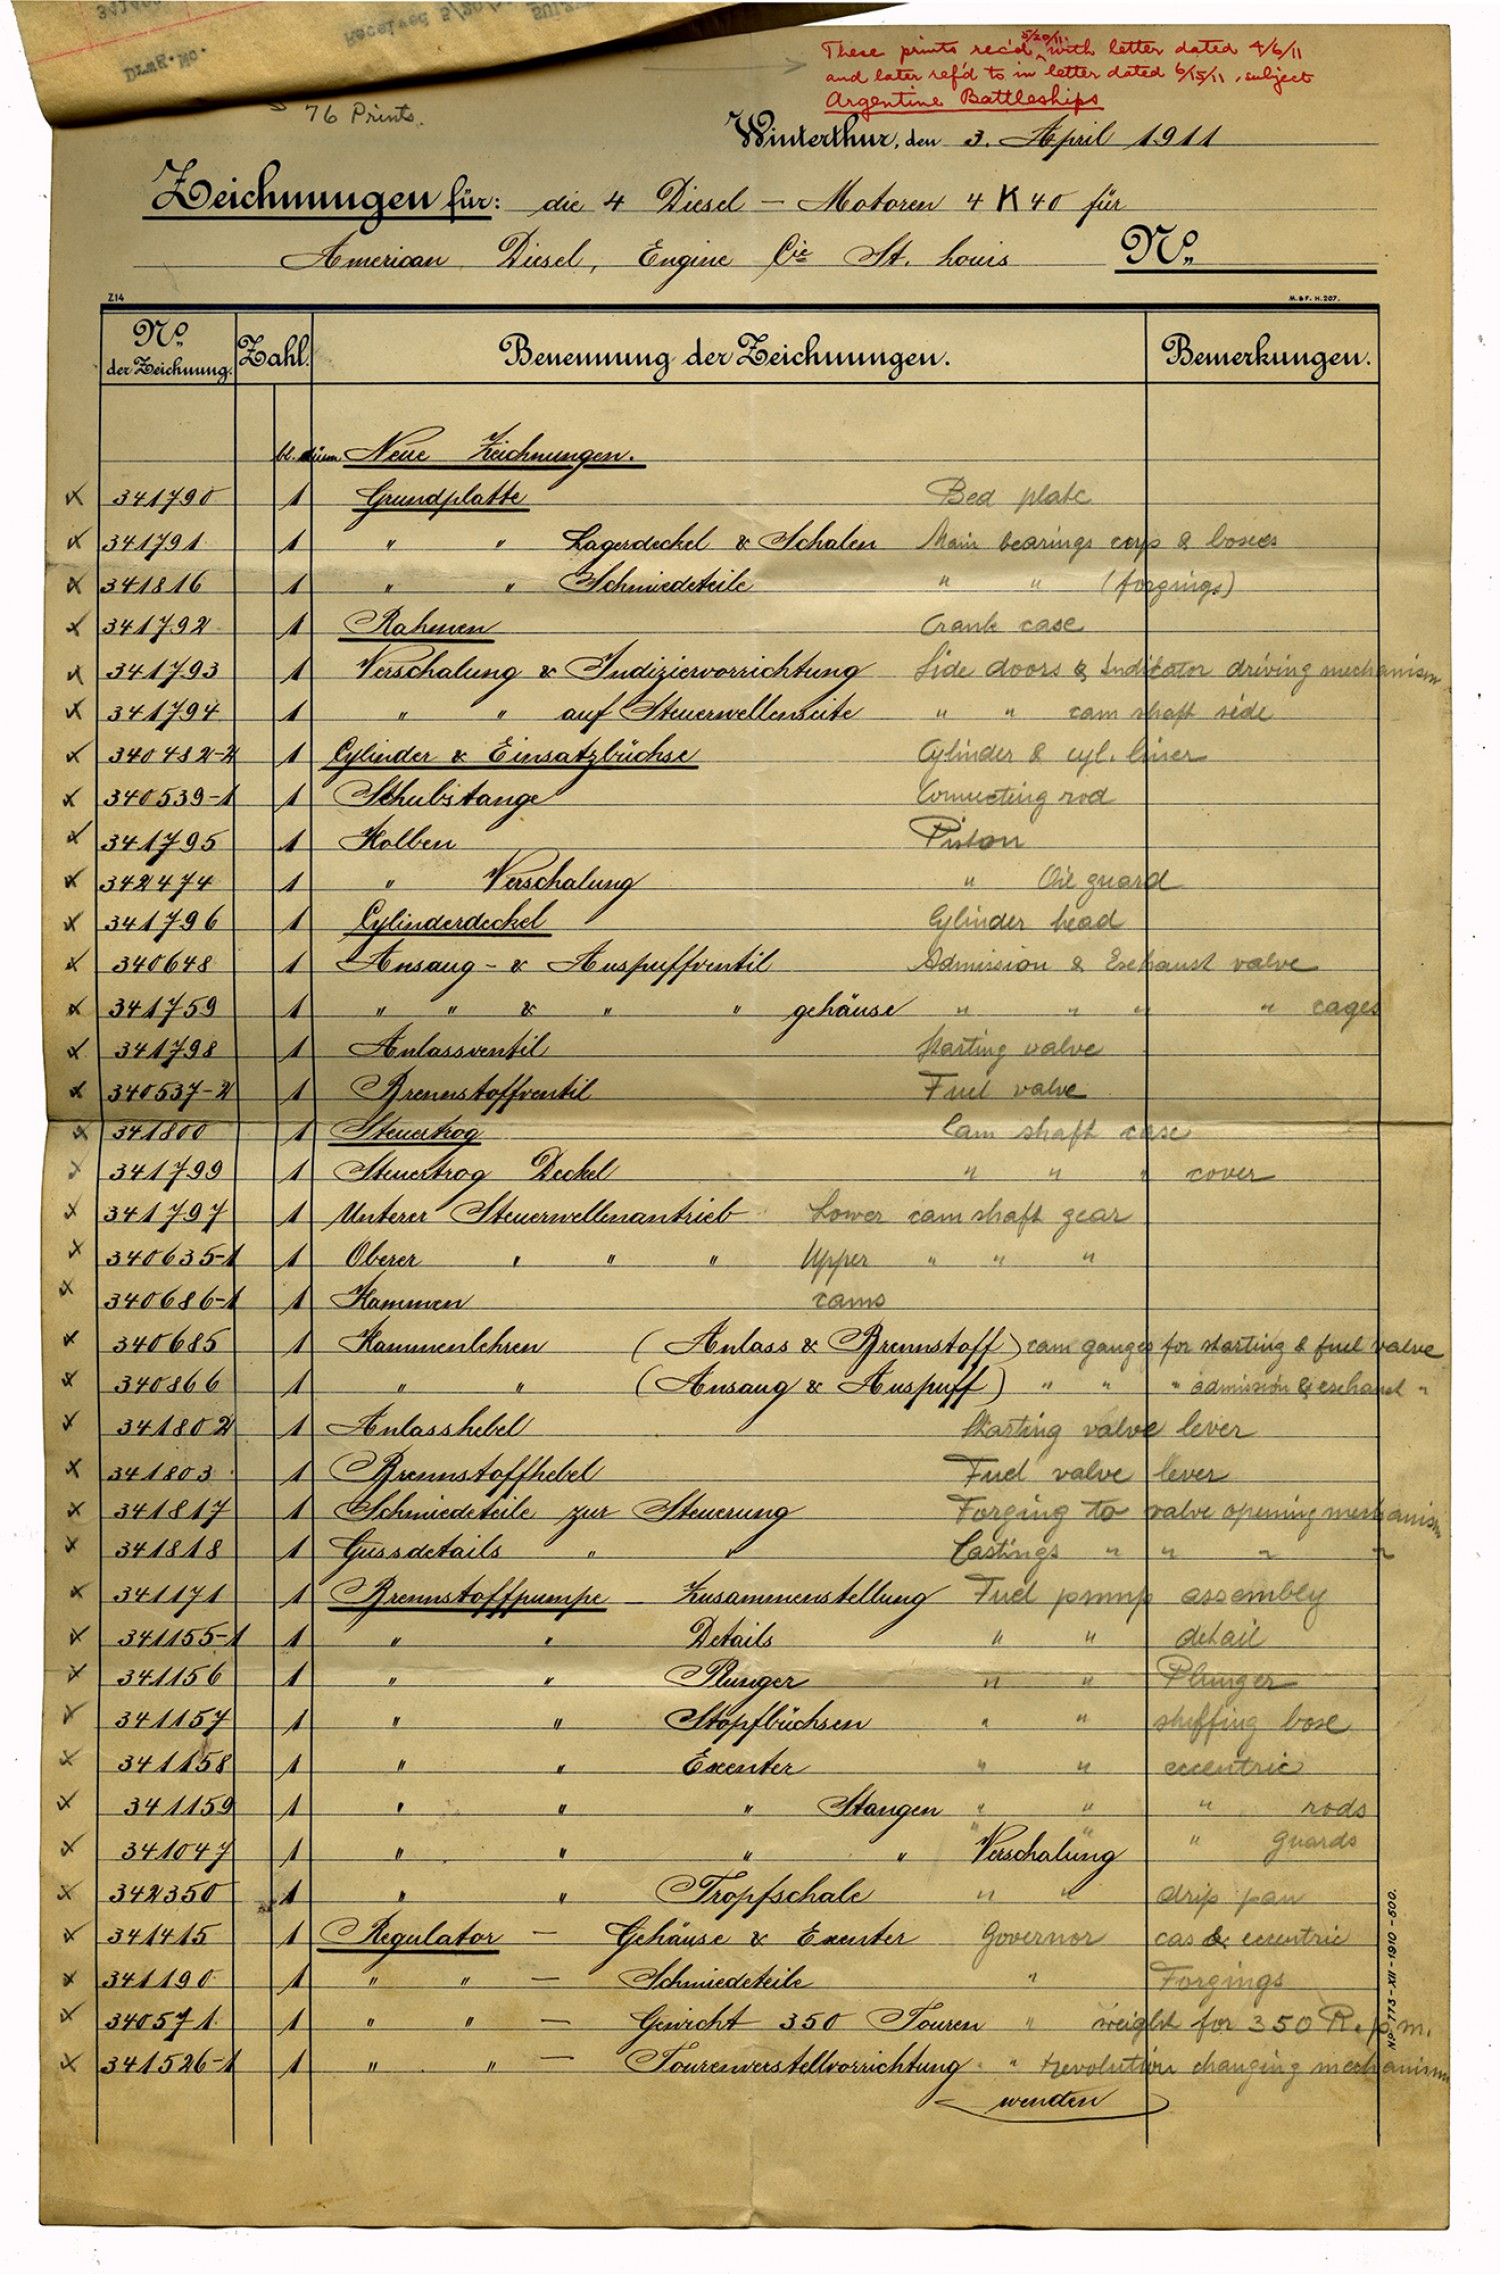 Drwg. No.
Received 5/20/
These prints rec'd 5/20/11 with letter dated 4/6/11
and later ref'd to in letter dated 6/15/11, subject
Argentine Battleships
76 Prints.
Winterthur, den 3. April 1911
Zeichnungen für: die 4 Diesel - Motoren 4 K 40 für
American Diesel, Engine Cie St. Louis No.
Z14 M.&F. H. 207.
No. der Zeichnung. Zahl. Benennung der Zeichnungen. Bemerkungen.
Neue Zeichnungen.
x 341790 1 Grundplatte Bed plate
x 341791 1 " " Lagerdeckel & Schalen Main bearings caps & boxes
x 341816 1 " " Schmiedeteile " " (forgings)
x 341792 1 Rahmen Crank case
x 341793 1 Verschalung & Indiziervorrichtung Side doors & Indicator driving mechanism
x 341794 1 " " auf Steuerwellenseite " " cam shaft side
x 340482-2 1 Cylinder & Einsatzbüchse Cylinder & cyl. liner
x 340539-1 1 Schubstange Connecting rod
x 341795 1 Kolben Piston
x 342474 1 " Verschalung " Oil guard
x 341796 1 Cylinderdeckel Cylinder head
x 340648 1 Ansaug- & Auspuffventil Admission & Exhaust valve
x 341759 1 " " & " " gehäuse " " " " cages
x 341798 1 Anlassventil Starting valve
x 340537-2 1 Brennstoffventil Fuel valve
x 341800 1 Steuertrog Cam shaft case
x 341799 1 Steuertrog Deckel " " " cover
x 341797 1 Unterer Steuerwellenantrieb Lower cam shaft gear
x 340635-1 1 Oberer " " " Upper " " "
x 340686-1 1 Kammen cams
x 340685 1 Kammenlehren (Anlass & Brennstoff) cam gauges for starting & fuel valve
x 340866 1 " " (Ansaug & Auspuff) " " " admission & exhaust "
x 341802 1 Anlasshebel Starting valve lever
x 341803 1 Brennstoffhebel Fuel valve lever
x 341817 1 Schmiedeteile zur Steuerung Forging to valve opening mechanism
x 341818 1 Gussdetails " " Castings " " " "
x 341171 1 Brennstoffpumpe - Zusammenstellung Fuel pump assembly
x 341155-1 1 " " Details " " detail
x 341156 1 " " Plunger " " Plunger
x 341157 1 " " Stopfbüchsen " " stuffing box
x 341158 1 " " Excenter " " eccentric
x 341159 1 " " " Stangen " " " rods
x 341047 1 " " " " Verschalung " " " Guards
x 342350 1 " " Tropfschale " " drip pan
x 341415 1 Regulator - Gehäuse & Excenter Governor cas & eccentric
x 341190 1 " " - Schmiedeteile " Forgings
x 340571 1 " " - Gewicht 350 Touren " weight for 350 R.p.m.
x 341526-1 1 " " - Tourenverstellvorrichtung " revolution changing mechanism
wenden
No. 173-XII-1910-500.